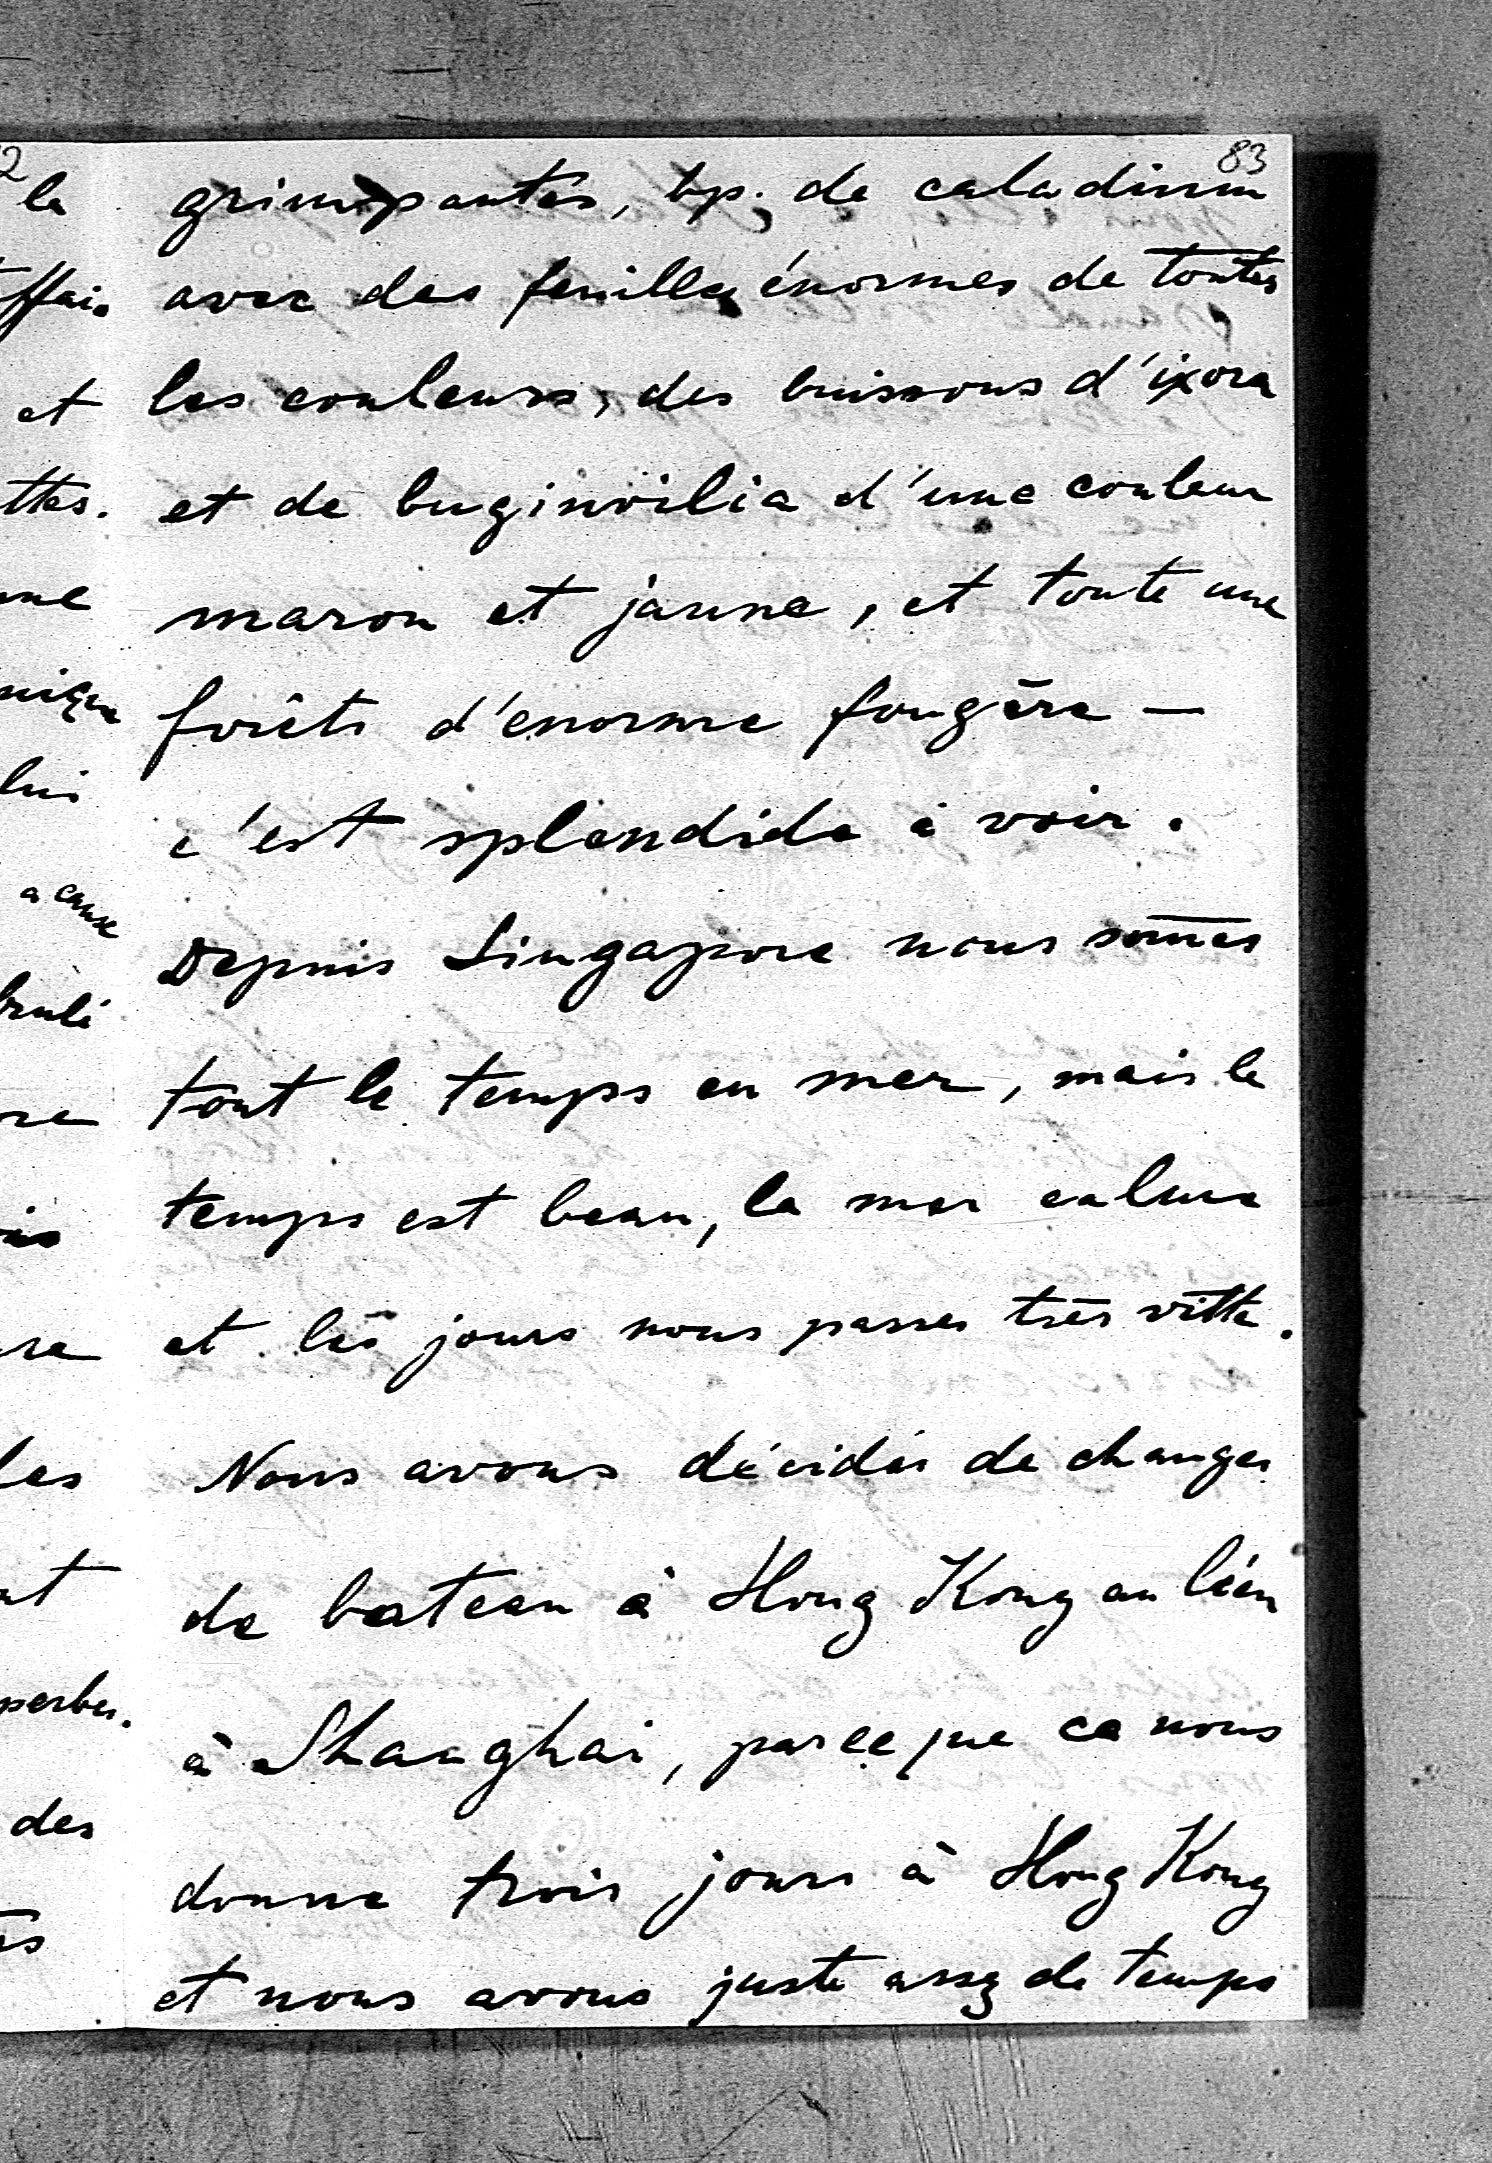 83
grimpantes, bp. de caladium
avec des feuilles énormes de toutes
les couleurs, des buissons d'ixora
et de buginvilia d'une couleur
maron et jaune, et toute une
forêts d'enorme fougère —
c'est splendide à voir.
Depuis Singapore nous som̄es
tout le temps en mer, mais le
temps est beau, la mer calme
et les jours nous passes très vitte.
Nous avons décidés de changer
de bateau à Hong Kong au lieu
à Shanghai, parceque ca nous
donne trois jours à Hong Kong
et nous avons juste assez de temps
2
le
et
ttes.
lui
a cause
brulé
les
des